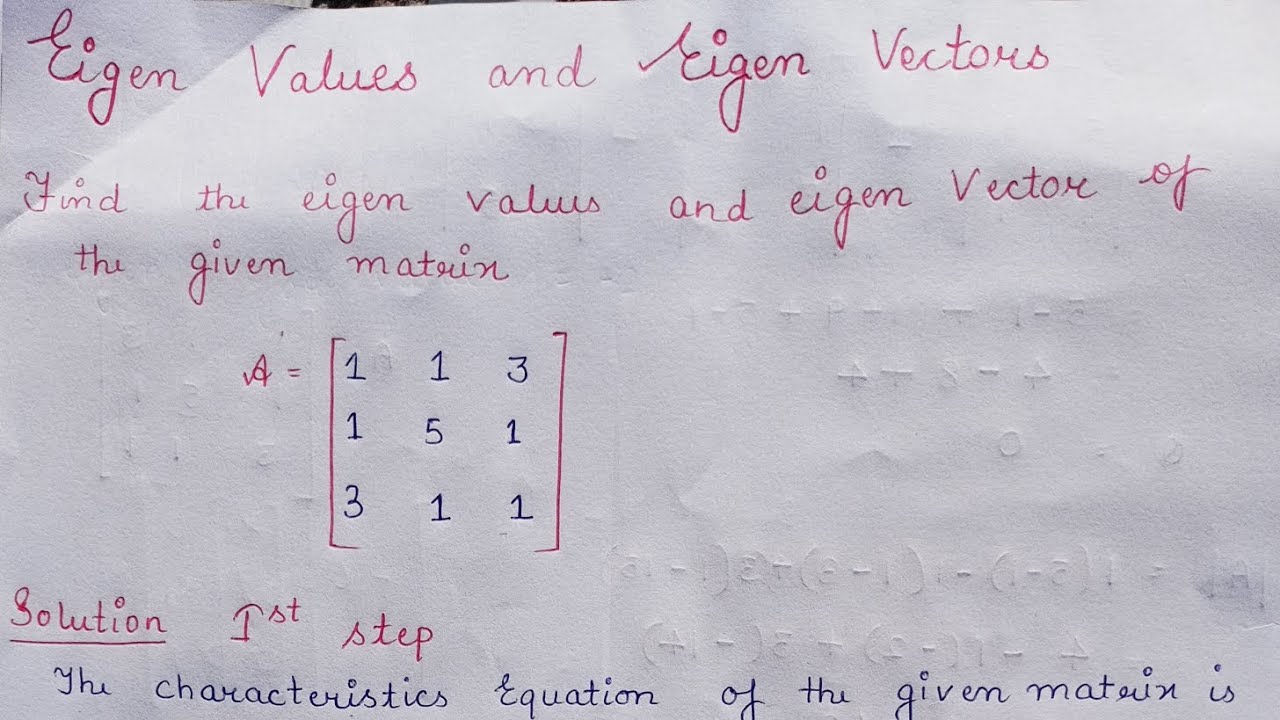 Eigen Values and Eigen Vectors
Find the eigen values and eigen Vector of
the given matrix
A = [1 1 3
1 5 1
3 1 1]
Solution Ist step
The characteristics Equation of the given matrix is